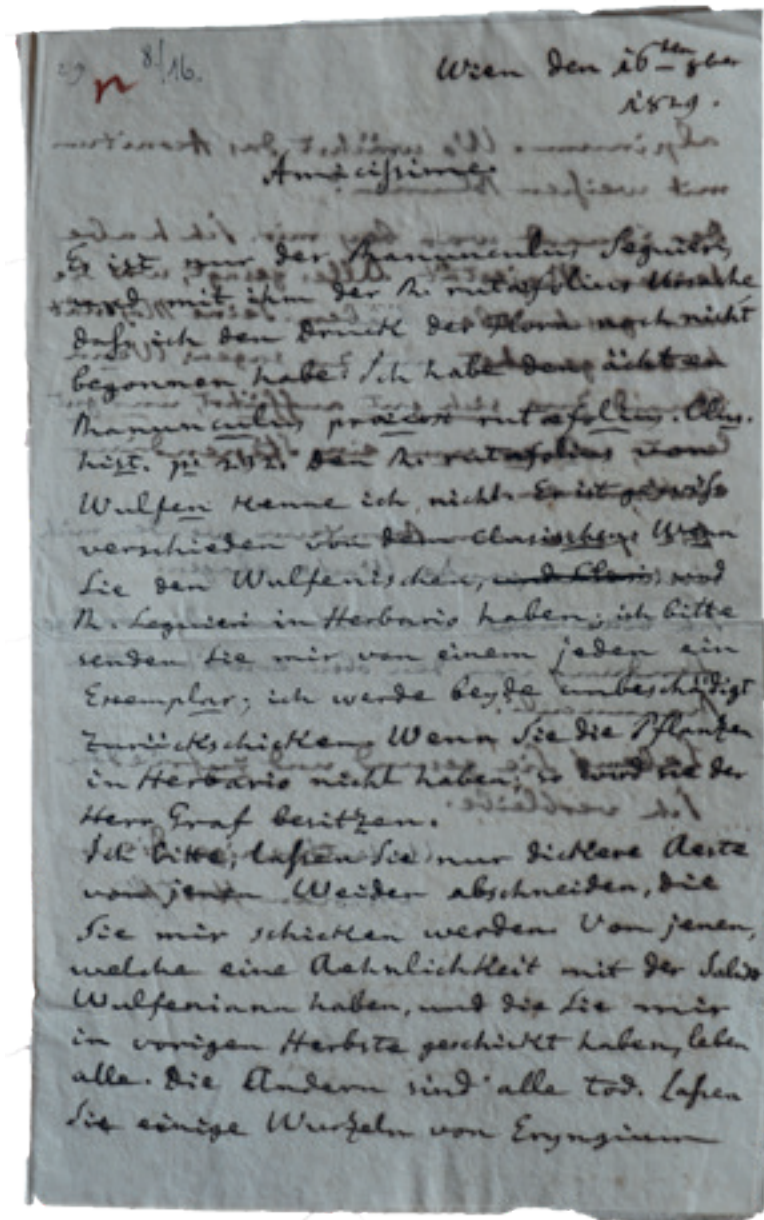 29 n 8/16.
Wien den 16ten 9ber
1829.
Amicissime
Es ist nur der Ranunculus Seguieri,
und mit ihm der R. rutaefolius Ursache
daß ich den Druck der Flora noch nicht
begonnen habe. Ich habe den ächten
Ranunculus praecox rutaefolius. Clus.
hist. p. 232. den R. rutaefolius von
Wulfen kenne ich nicht. Er ist gewiß
verschieden von dem Clusischen. Wenn
Sie den Wulfenischen, und
R. Seguieri in Herbario haben, ich bitte
senden Sie mir von einem jeden ein
Exemplar; ich werde beyde unbeschädigt
zurückschicken. Wenn Sie die Pflanzen
in Herbario nicht haben, so wird sie der
Herr Graf besitzen.
Ich bitte, laßen Sie nur dickere Aeste
von jenen Weiden abschneiden, die
Sie mir schicken werden. Von jenen,
welche eine Aehnlichkeit mit der Salix
Wulfeniana haben, und die Sie mir
in vorigen Herbste geschickt haben, leben
alle. Die Andern sind alle tod. Laßen
Sie einige Wurzeln von Eryngium